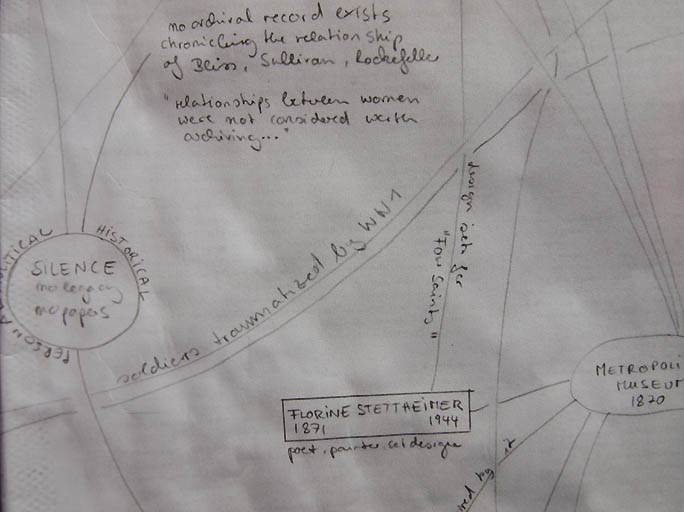 no archival record exists
chronicling the relationship
of Bliss, Sullivan, Rockefeller
"relationships between women
were not considered worth
archiving..."
HISTORICAL
SILENCE
no legacy
no papers
soldiers traumatized by WW1
design sets for
"Four Saints"
FLORINE STETTHEIMER
1871 1944
poet, painter, set designer
METROPOLI
MUSEUM
1820
by it